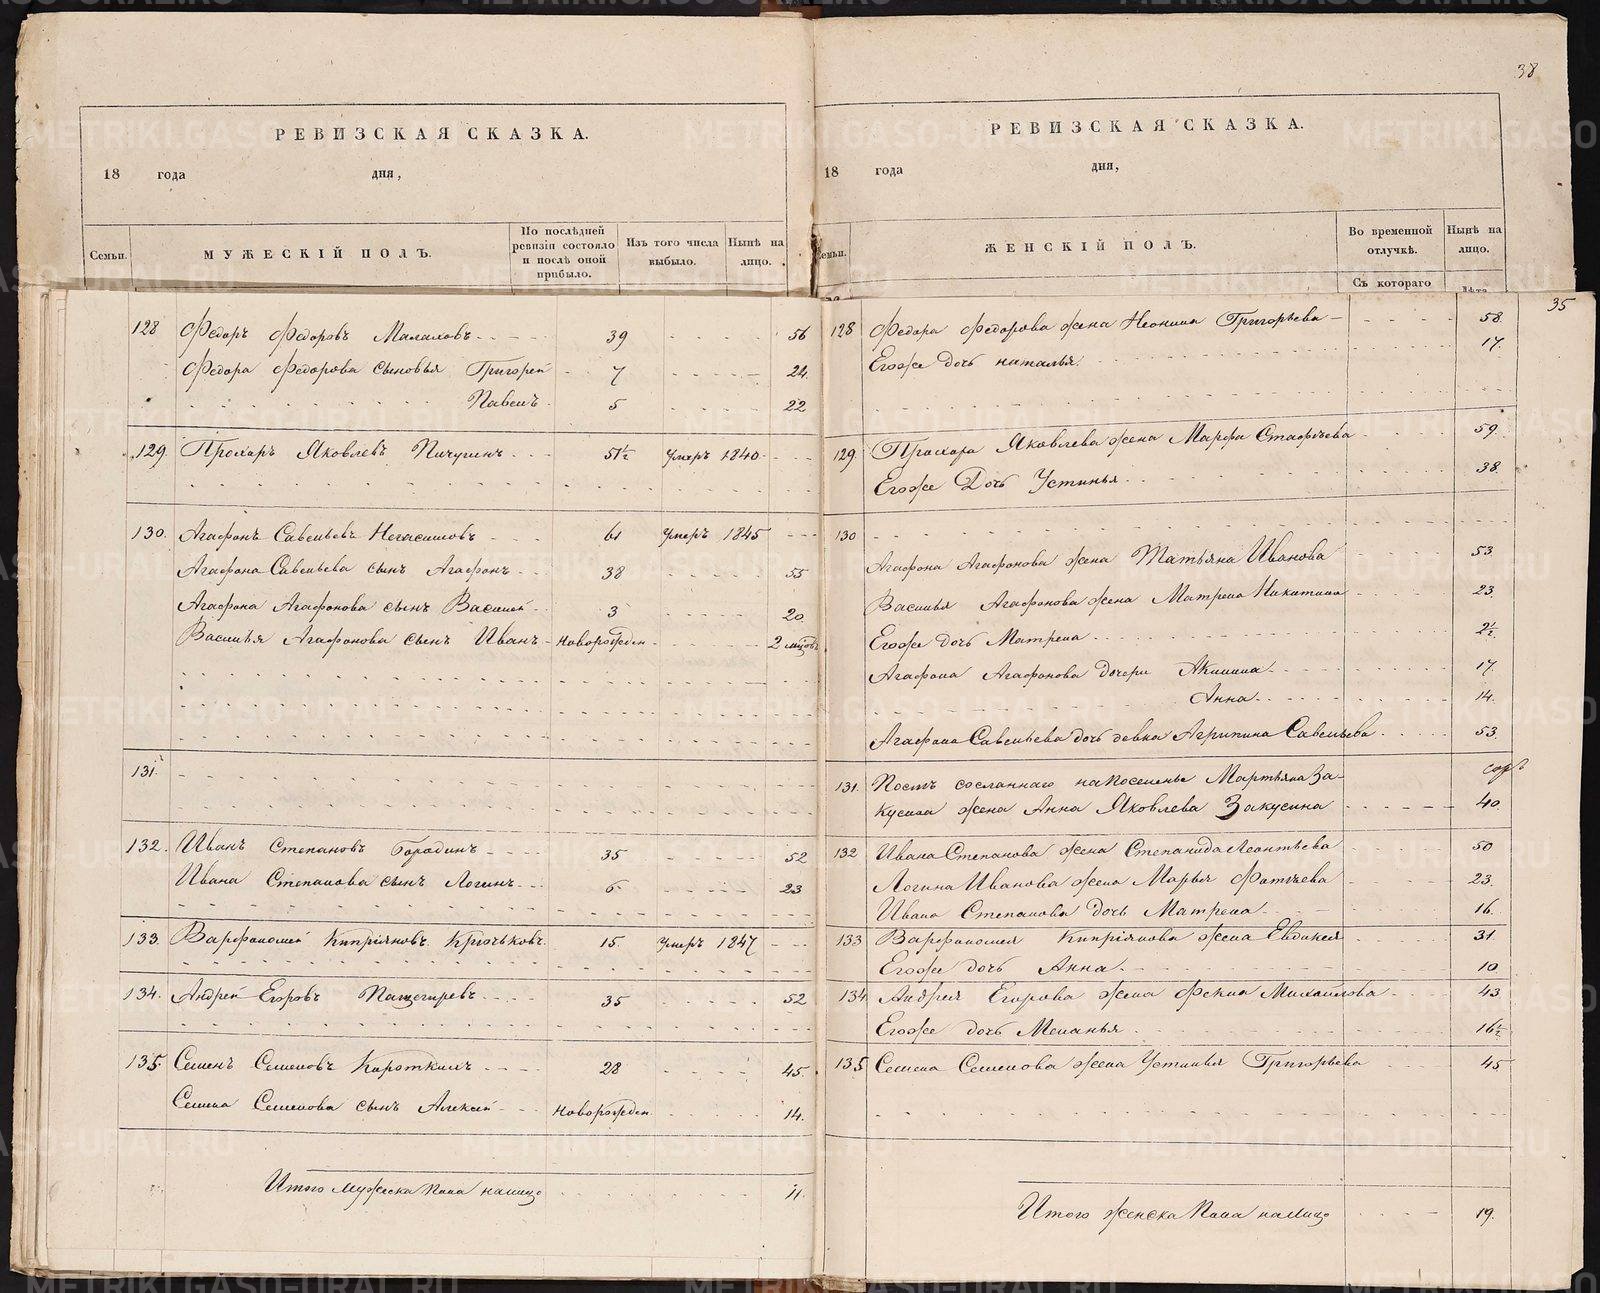 38
РЕВИЗСКАЯ СКАЗКА.
18 года дня,
Семьи.
МУЖЕСКІЙ ПОЛЪ.
По послѣдней ревизіи состояло и послѣ оной прибыло.
Изъ того числа выбыло.
Нынѣ на лицо.
128 Федоръ Федоровъ Малаловъ 39 56
Федора Федорова сыновья Григорей 7 24
Павелъ 5 22
129 Прохаръ Яковлевъ Пичугинъ 51½ умеръ 1840
130. Агафонъ Савельевъ Негасиловъ 61 умеръ 1845
Агафона Савельева сынъ Агафонъ 38 55
Агафона Агафонова сынъ Василей 3 20
Василья Агафонова сынъ Иванъ новорожден 2 мцовъ
131.
132. Иванъ Степановъ Бородинъ 35 52
Ивана Степанова сынъ Логинъ 6 23
133. Варфоломей Кипріяновъ Крючьковъ 15 умеръ 1847
134. Андрей Егоровъ Пащегиревъ 35 52
135. Семенъ Семеновъ Кароткихъ 28 45
Семена Семенова сынъ Алексей новорожден 14.
Итого мужеска пола налицо 11.
РЕВИЗСКАЯ СКАЗКА.
18 года дня,
Семьи.
ЖЕНСКІЙ ПОЛЪ.
Во временной отлучкѣ.
Нынѣ на лицо.
Съ котораго
Лѣта
35
128 Федора Федорова жена Неонила Григорьева 58
Егоже дочь наталья 17
129. Прохара Яковлева жена Марфа Стафѣева 59
Егоже Дочь Устинья 38
130
Агафона Агафонова жена Татьяна Иванова 53
Василья Агафонова жена Матрена Никитина 23
Егоже дочь Матрена 2½
Агафона Агафонова дочери Акилина 17
Анна 14.
Агафона Савельева дочь девка Агрипина Савельева 53.
131. Послѣ сосланнаго на поселенье Мартьяна За-
кусина жена Анна Яковлева Закусина 40
132 Ивана Степанова жена Степанида Леонтьева 50
Логина Иванова жена Марья Фотѣева 23.
Ивана Степанова дочь Матрена 16
133 Варфоломея Кипріянова жена Евдокея 31
Егоже дочь Анна 10
134 Андрея Егорова жена Фекла Михайлова 43
Егоже дочь Меланья 16½
135 Семена Семенова жена Устинья Григорьева 45
Итого женска пола налицо 19.
METRIKI.GASO-URAL.RU